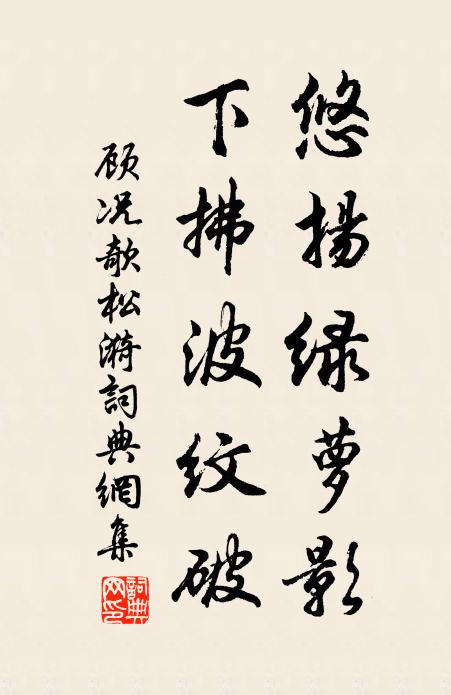 悠揚绿萝影
下拂波纹破
顾况欹松漪詞典網集
詞典网印